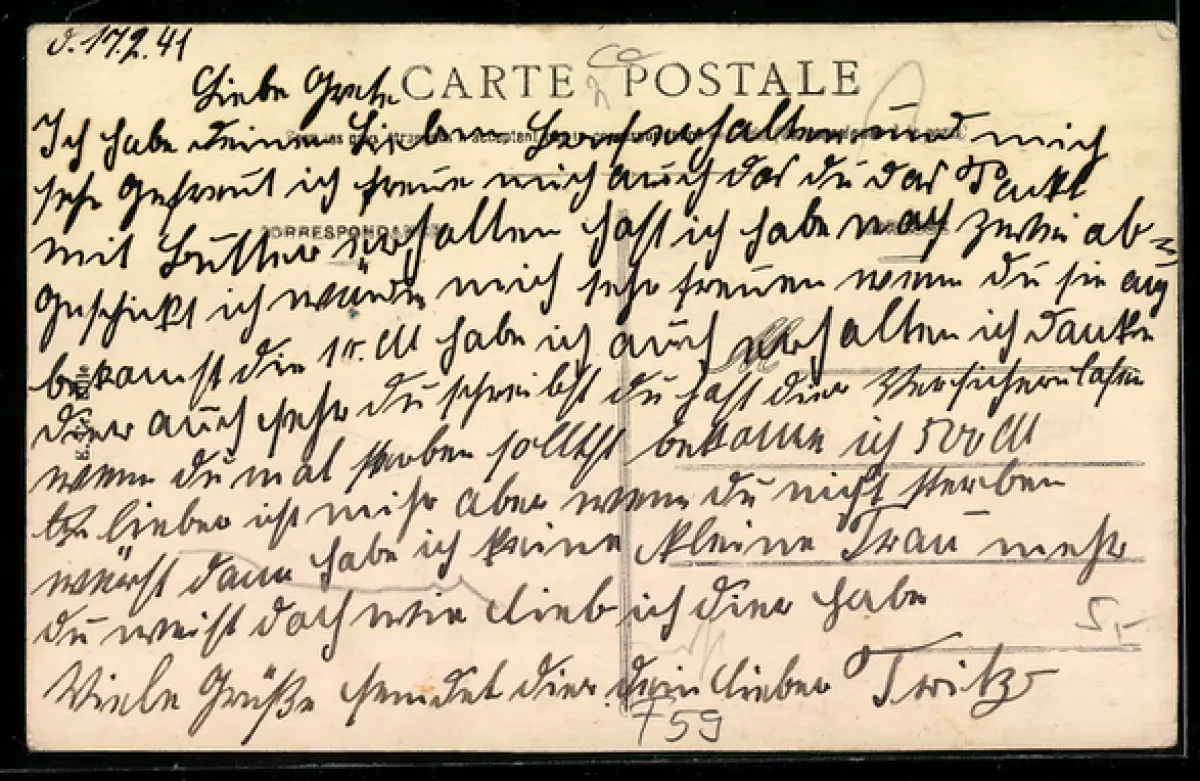 d. 17.2.41
CARTE POSTALE
Liebe Grete
Ich habe deinen Lieben Brief erhalten und mich
sehr gefreut ich freue mich auch das du das Packt
CORRESPONDANCE
mit Butter erhalten hast ich habe noch zwei ab=
geschickt ich würde mich sehr freuen wenn du sie auch
bekomst die 10. M habe ich auch erhalten ich danke
dier auch sehr du schreibst du hast dier Versichern lasen
wenn du mal storben solltst bekome ich 500 M
lieber ist mihr aber wenn du nicht sterben
würst dann habe ich keine kleine Frau mehr
du weist doch wie lieb ich dier habe
5,-
Viele Grüße sendet dier dein lieber Fritz
F59